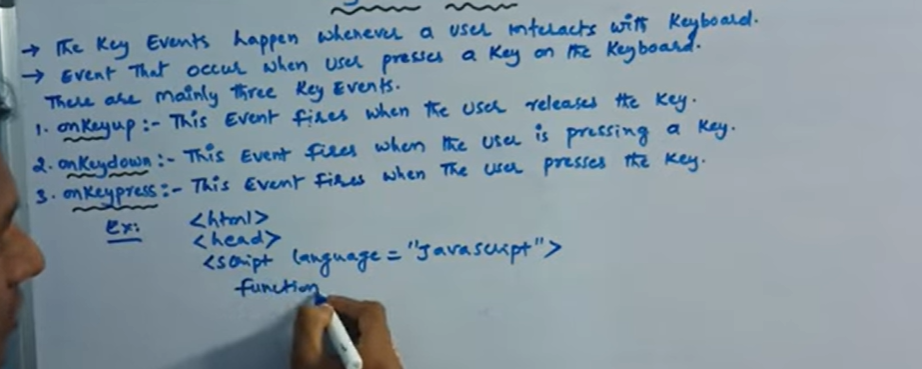 → The Key Events happen whenever a user interacts with Keyboard.
→ Event That occur when user presses a Key on the Keyboard.
There are mainly three Key Events.
1. onKeyup :- This Event fires when the user releases the Key.
2. onKeydown :- This Event fires when the user is pressing a Key.
3. onKeypress :- This Event fires when The user presses the Key.
Ex: <html>
<head>
<script language = "Javascript">
function